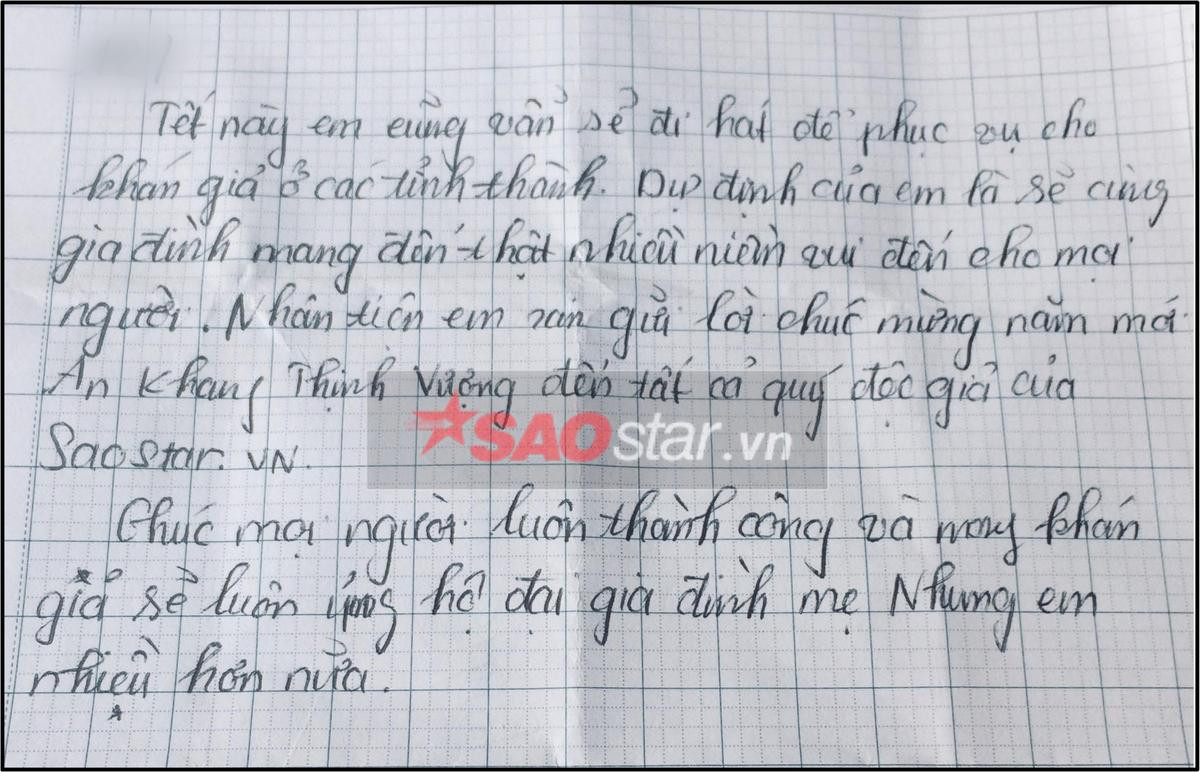 Tết này em cũng vẩn sẻ đi hát để phục vụ cho
khán giả ở các tỉnh thành. Dự định của em là sẻ cùng
gia đình mang đến thật nhiều niềm vui đến cho mọi
người. Nhân tiện em xin gửi lời chúc mừng năm mới
An Khang Thịnh Vượng đến tất cả quý độc giả của
SAOstar.vn
Saostar. VN.
Chúc mọi người luôn thành công và mong khán
giả sẻ luôn ủng hộ đại gia đình mẹ Nhung em
nhiều hơn nửa.